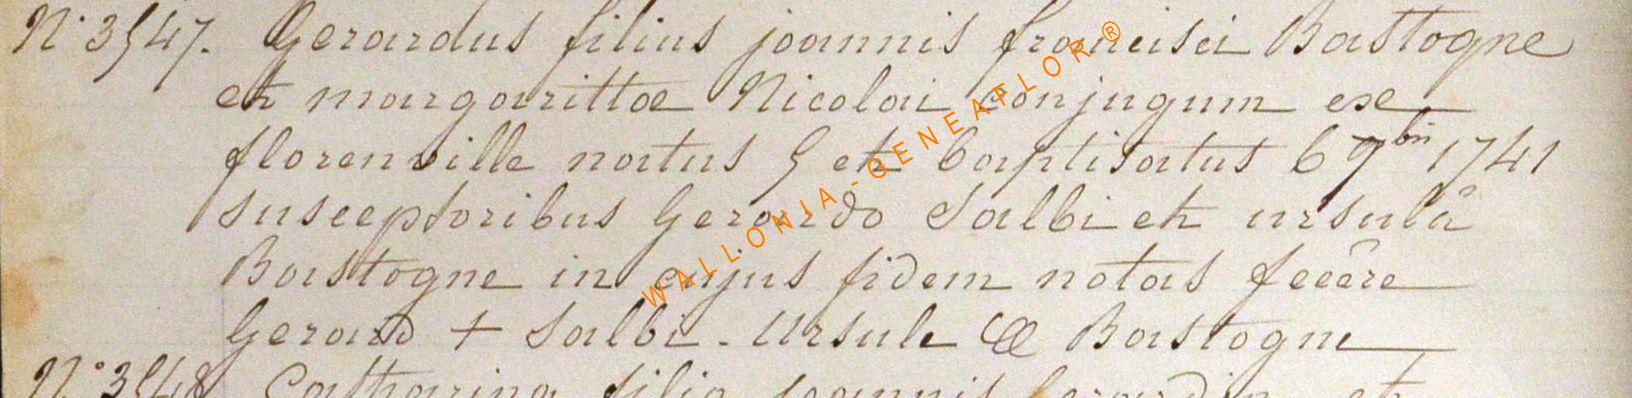 N° 3547. Gerardus filius joannis francisci Bastogne
et margarittae Nicolai conjugum ex
florenville natus 5 et baptisatus 6 7bris 1741
susceptoribus Gerardo Salbi et ursulâ
Bastogne in cujus fidem notas fecêre
Gerard + Salbi - Ursule Bastogne
N° 3548 Catharina filia joannis et
WALLONIA-GENEAFLOR®